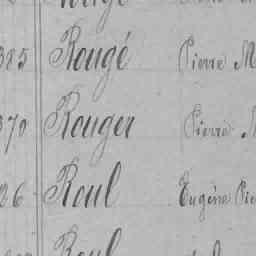 385 Rougé Pierre M
370 Rouger Pierre M
26 Roul Eugène Pie
Roul